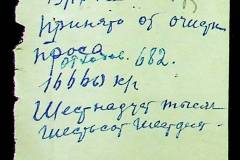 Принято от очистки
проса
отходов. 682.
16668 кр
Шестнадцат тысяч
шестьсот шестдест